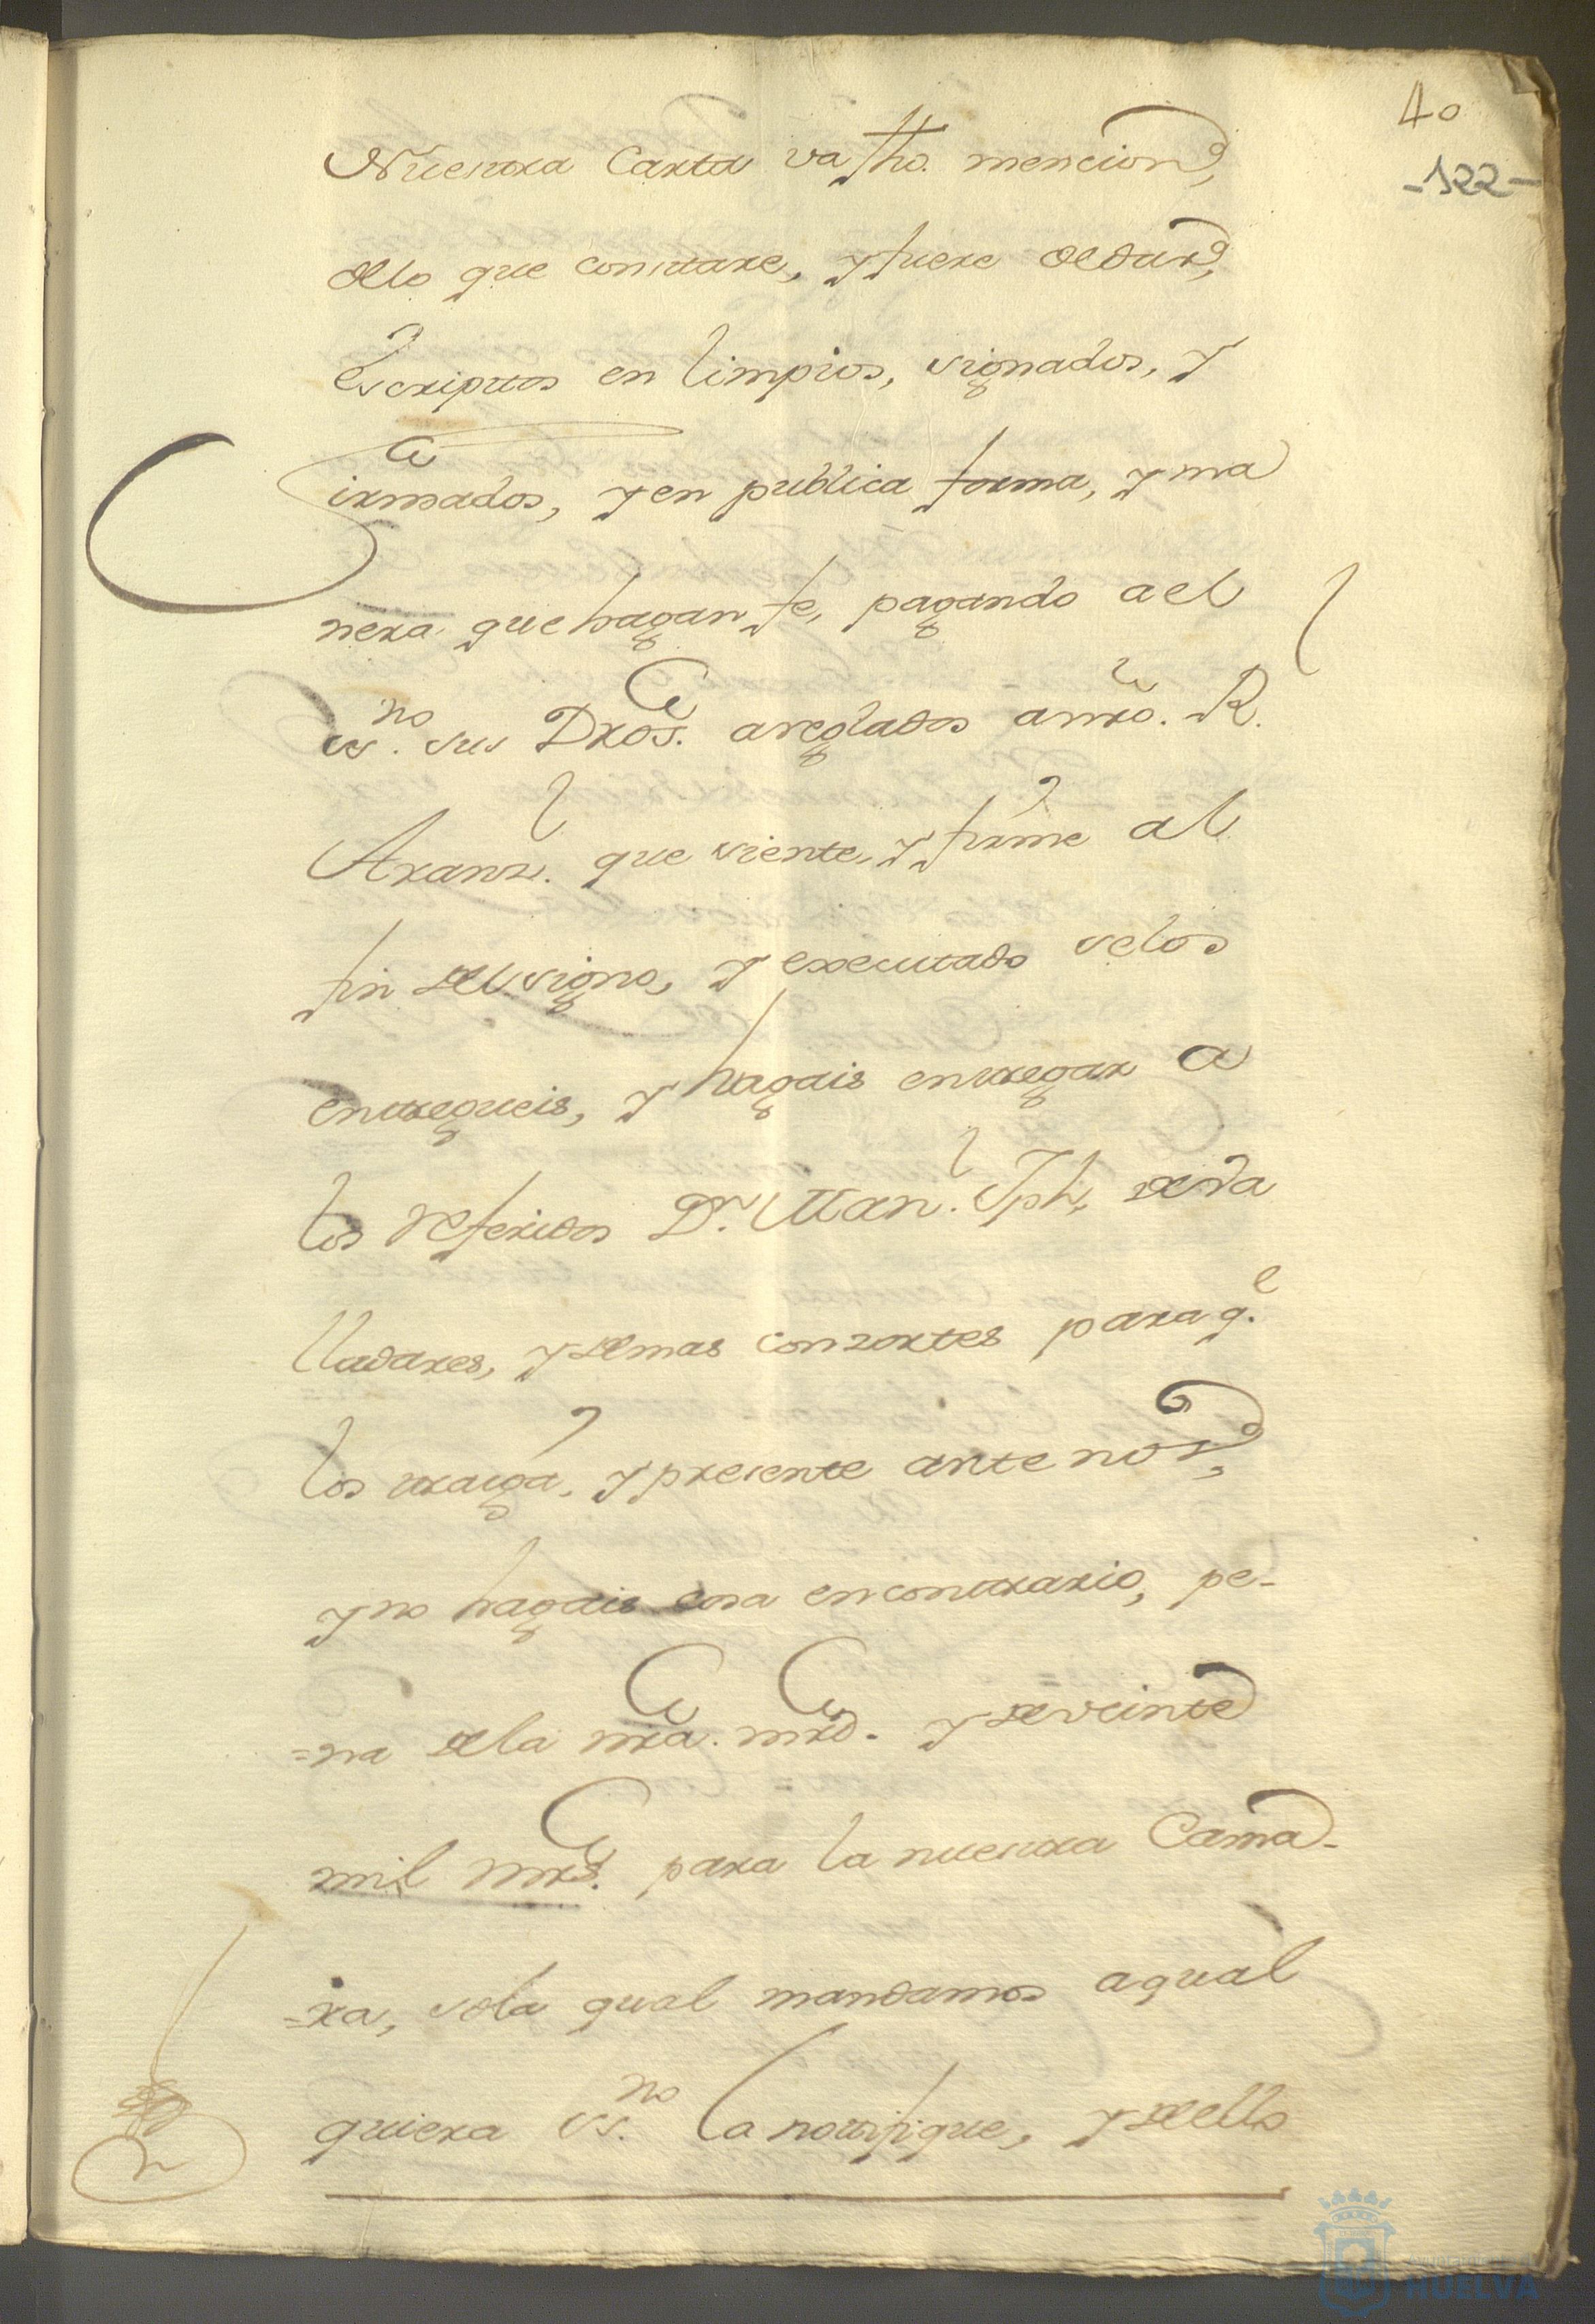 40
-122-
Nuestra Carta va fho. mencion,
delo que constare, y fuere dedar,
Escriptos en limpios, signados, y
firmados, y en publica forma, y ma
nera que hagan fe, pagando ael
ess.no sus Dros. areglados anro. R.
Aranzl. que siente, y firme al
fin del signo, y executado selos
entregueis, y hagais entregar a
los referidos Dn. Manl. Jph, deva
lladares, y demas conzortes para q.e
los traiga, y presente ante nos,
y no hagais cosa en contrario, pe-
=na dela nra. mrd. y de veinte
mil mrs. para la nuestra Cama-
=ra, sola qual mandamos a qual
quiera ess.no la notifique, y dello
AYUNTAMIENTO DE
HUELVA